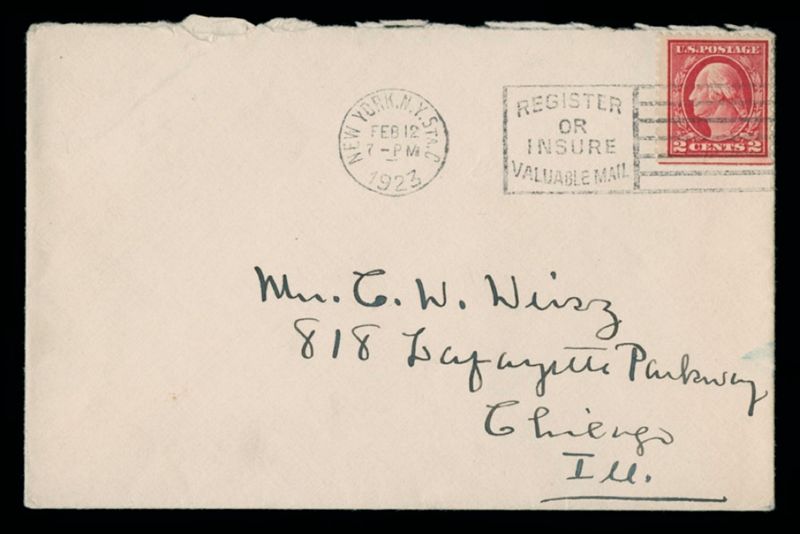 U.S. POSTAGE
2 CENTS 2
NEW YORK, N.Y. STA. C
FEB 12
7 - PM
1923
REGISTER
OR
INSURE
VALUABLE MAIL
Mr. C. W. Weisz
818 Lafayette Parkway
Chicago
Ill.